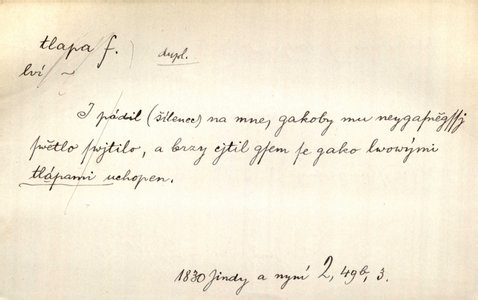 tlapa f.
dupl.
lví ~
I pádil (šílenec) na mne, gakoby mu neygasněgſſj
ſwětlo ſwjtilo, a brzy cjtil gſem ſe gako lwowými
tlápami uchopen.
1830 Jindy a nyní 2, 49b, 3.